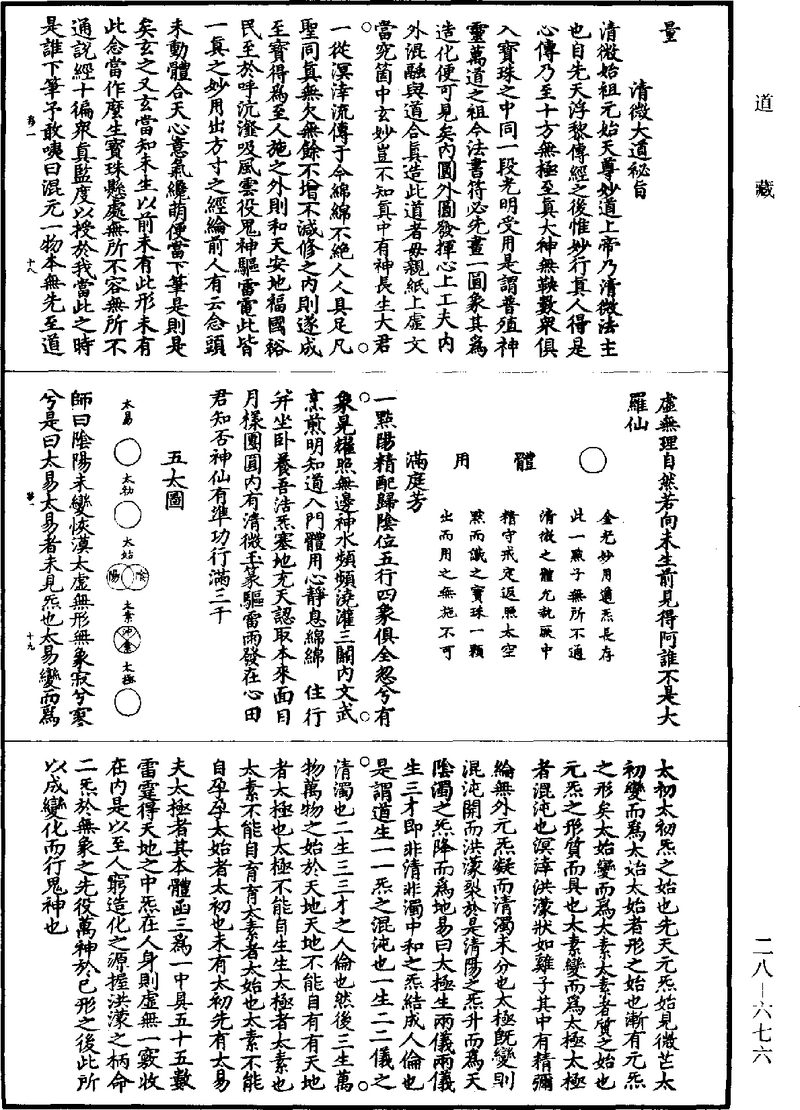 道藏
二八—六七六
量
清微大道秘旨
清微始祖元始天尊妙道上帝乃清微法主
也自先天浮黎傳經之後惟妙行真人得是
心傳乃至十方無極至真大神無鞅數衆俱
入寶珠之中同一段光明受用是謂普殖神
靈萬道之祖令法書符必先畫一圓象其為
造化便可見矣內圓外圓發揮心上工夫內
外混融與道合真造此道者毋親紙上虛文
當究箇中玄妙豈不知真中有神長生大君
一從溟涬流傳于今綿綿不絕人人具足凡
聖同真無欠無餘不增不減修之內則遂成
至寶得為至人施之外則和天安地福國裕
民至於呼沆瀣吸風雲役鬼神驅雷電此皆
一真之妙用出方寸之經綸前人有云念頭
未動體合天心意氣纔萌便當下筆是則是
矣玄之又玄當知未生以前未有此形未有
此念當作麼生寶珠懸處無所不容無所不
通說經十徧衆真監度以授於我當此之時
是誰下筆予敢咦曰混元一物本無先至道
十八
虛無理自然若向未生前見得阿誰不是大
羅仙
體
用
金光妙用通炁長存
此一點子無所不通
清微之體允執厥中
精守戒定返照太空
默而識之寶珠一顆
出而用之無施不可
滿庭芳
一點陽精配歸陰位五行四象俱全忽兮有
象晃耀照無邊神水頻頻澆灌三關內文武
烹煎明知道八門體用心靜息綿綿 住行
并坐卧養吾活炁塞地充天認取本來面目
月樣團圓內有清微玉篆驅雷雨發在心田
君知否神仙有準功行滿三千
五太圖
太易
太初
太始
陽
陰
太素
沖
炁
太極
師曰陰陽未變恢漠太虛無形無象寂兮寥
兮是曰太易太易者未見炁也太易變而為
十九
太初太初炁之始也先天元炁始見微芒太
初變而為太始太始者形之始也漸有元炁
之形矣太始變而為太素太素者質之始也
元炁之形質而具也太素變而為太極太極
者混沌也溟涬洪濛狀如雞子其中有精彌
綸無外元炁凝而清濁未分也太極既變則
混沌開而洪濛裂於是清陽之炁升而為天
陰濁之炁降而為地易曰太極生兩儀兩儀
生三才即非清非濁中和之炁結成人倫也
是謂道生一一炁之混沌也一生二二儀之
清濁也二生三三才之人倫也然後三生萬
物萬物之始於天地天地不能自有有天地
者太極也太極不能自生生太極者太素也
太素不能自育育太素者太始也太素不能
自孕孕太始者太初也未有太初先有太易
夫太極者其本體函三為一中具五十五數
雷霆得天地之中炁在人身則虛無一竅收
在內是以至人窮造化之源握洪濛之柄命
二炁於無象之先役萬神於已形之後此所
以成變化而行鬼神也